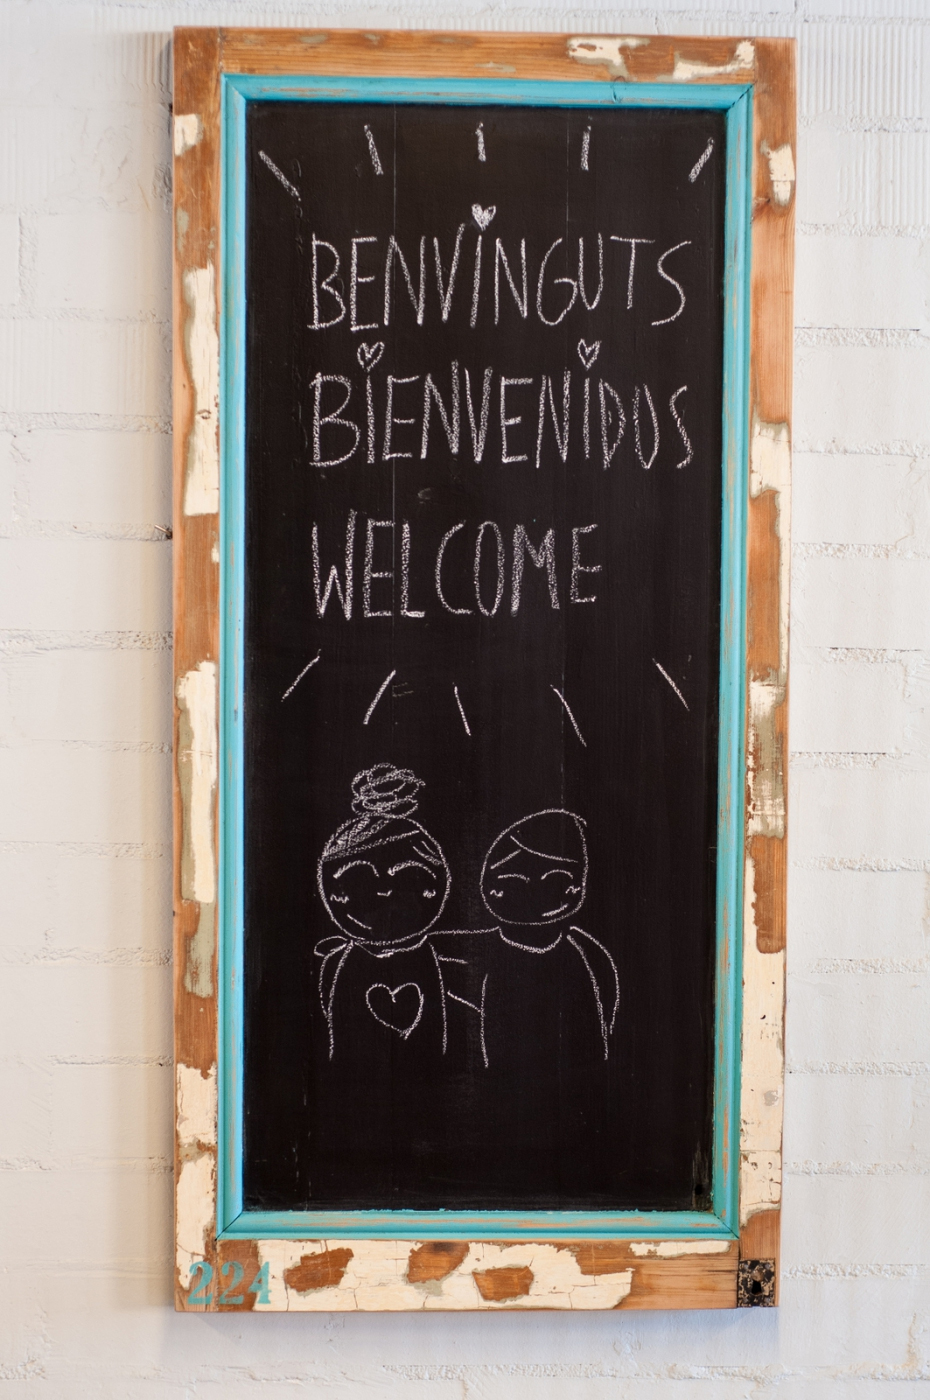 BENVINGUTS
BIENVENIDOS
WELCOME
224